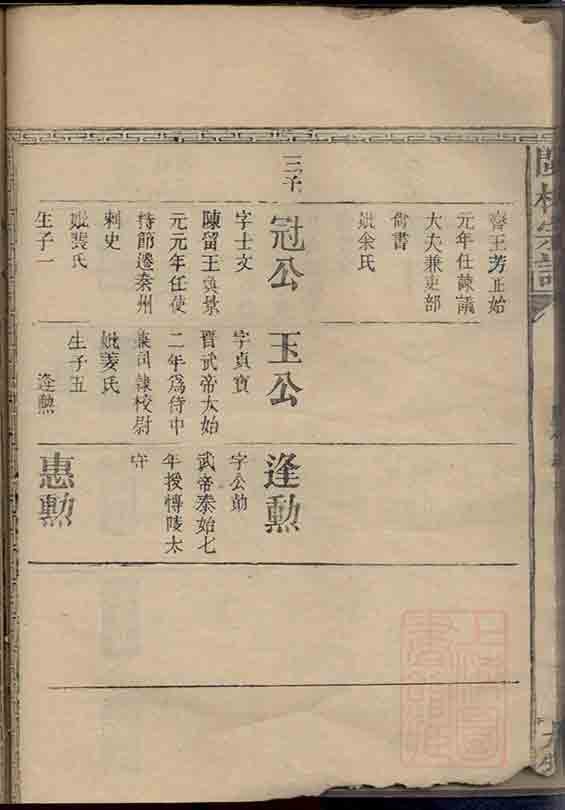 齊王芳正始
元年仕諫議
大夫兼吏部
尚書
妣余氏
三子
冠公
字士文
陳留王奐景
元元年任使
持節遷秦州
刺史
妣裴氏
生子一
玉公
字貞寶
晉武帝太始
二年為侍中
兼司隸校尉
妣姜氏
生子五
逢勲
逢勲
字公
武帝泰始七
年授愽陵太
守
惠勲